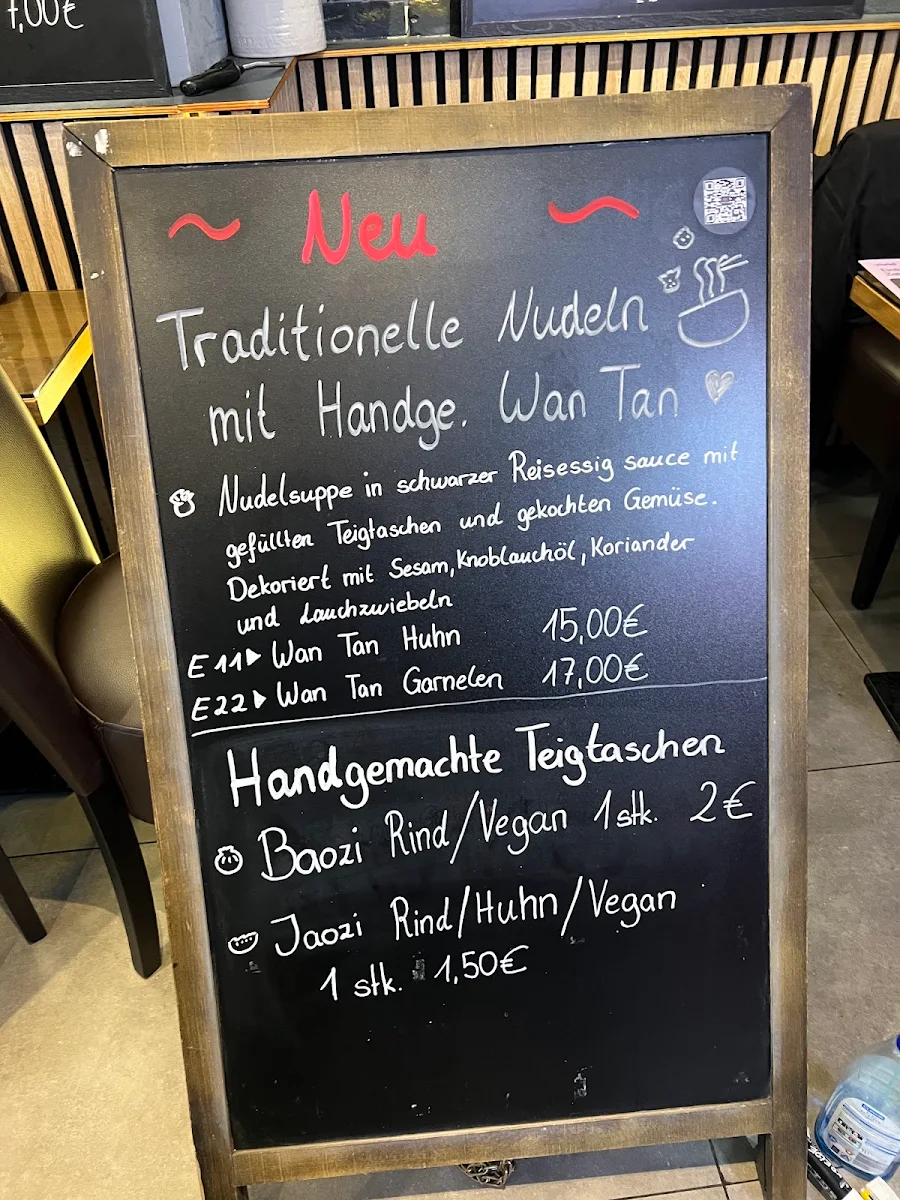 7,00€
Neu
Traditionelle Nudeln
mit Handge. Wan Tan
Nudelsuppe in schwarzer Reisessig sauce mit
gefüllten Teigtaschen und gekochten Gemüse.
Dekoriert mit Sesam, Knoblauchöl, Koriander
und Lauchzwiebeln
E11► Wan Tan Huhn 15,00€
E22► Wan Tan Garnelen 17,00€
Handgemachte Teigtaschen
Baozi Rind/Vegan 1 stk. 2€
Jaozi Rind/Huhn/Vegan
1 stk. 1,50€